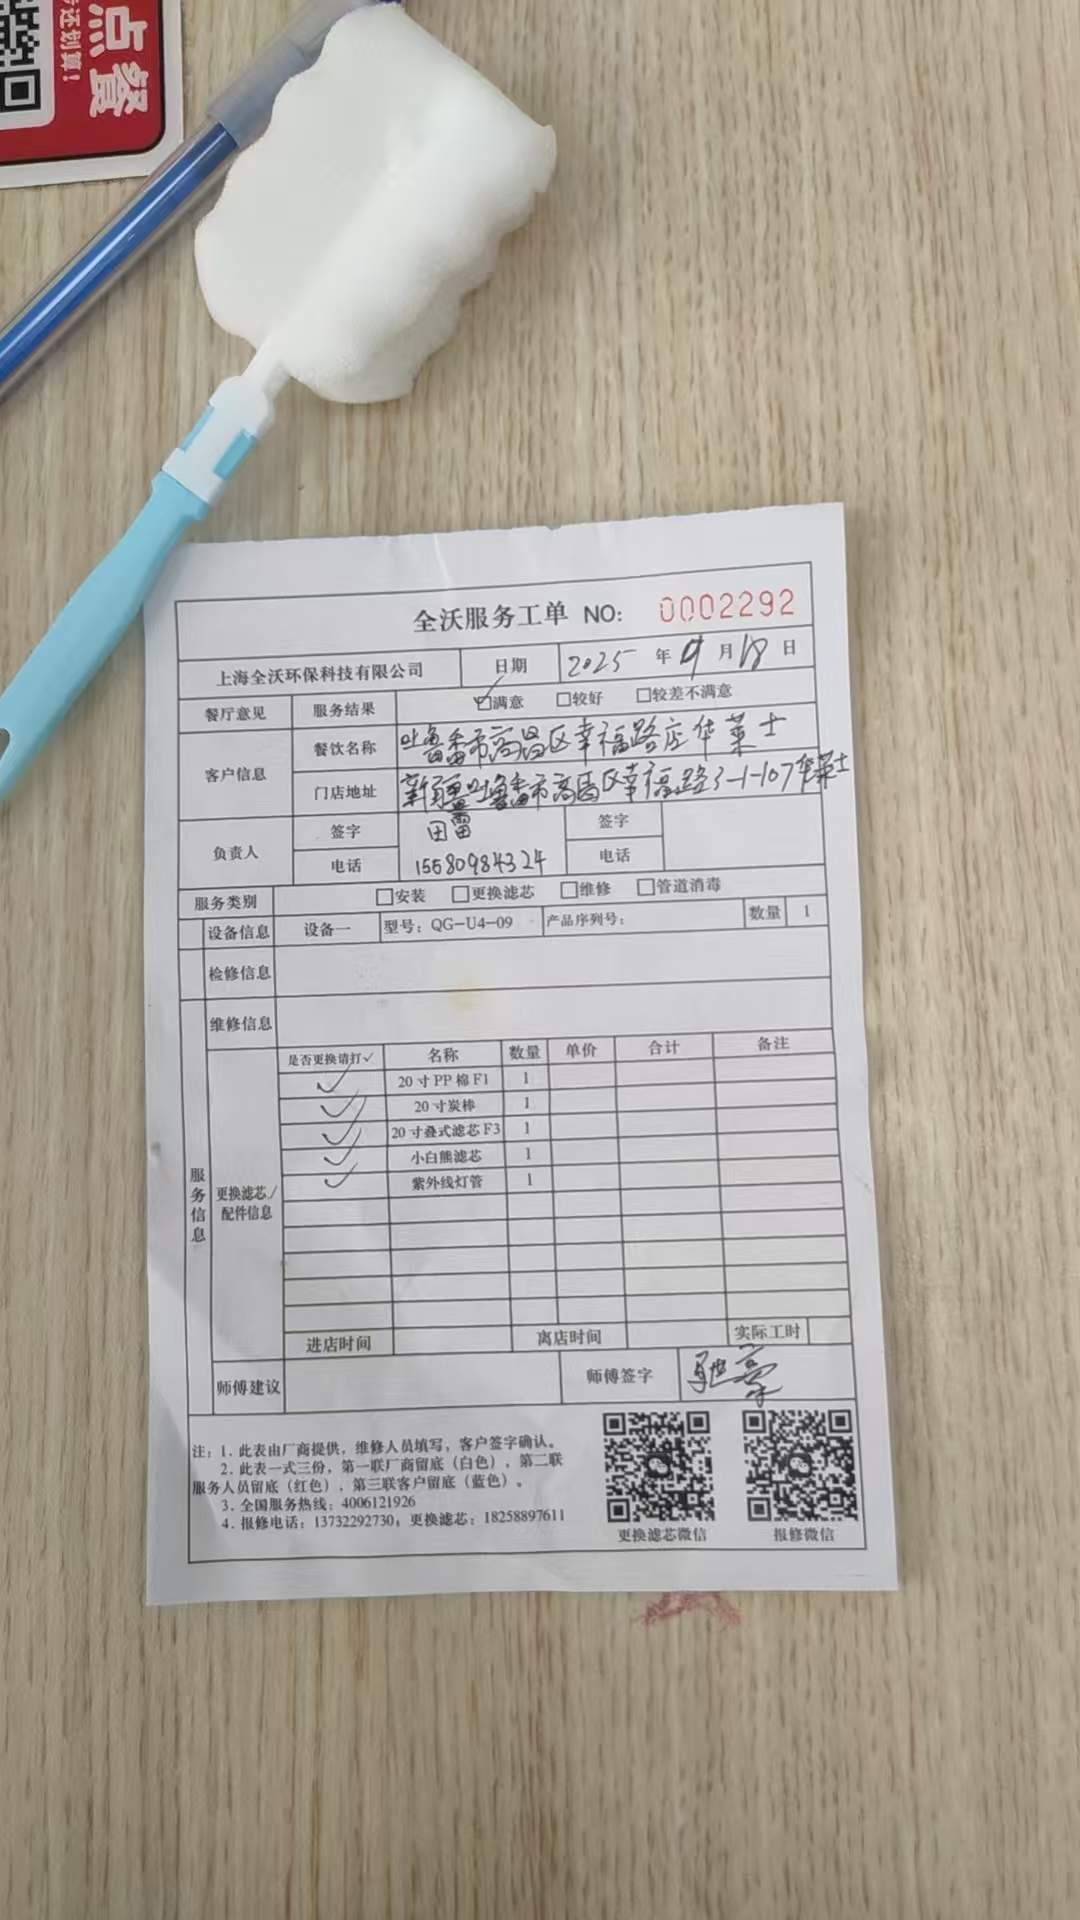 点餐
还划算！
全沃服务工单 NO: 0002292
上海全沃环保科技有限公司 日期 2025 年 9 月 18 日
餐厅意见 服务结果 ☑满意 □较好 □较差不满意
客户信息 餐饮名称 吐鲁番市高昌区幸福路店华莱士
门店地址 新疆吐鲁番市高昌区幸福路3-1-107华莱士
负责人 签字 田雷 签字
电话 15580984324 电话
服务类别 □安装 □更换滤芯 □维修 □管道消毒
设备信息 设备一 型号：QG-U4-09 产品序列号： 数量 1
检修信息
维修信息
服务信息
更换滤芯/配件信息
是否更换请打✓ 名称 数量 单价 合计 备注
✓ 20寸PP棉F1 1
✓ 20寸炭棒 1
✓ 20寸叠式滤芯F3 1
✓ 小白熊滤芯 1
✓ 紫外线灯管 1
进店时间 离店时间 实际工时
师傅建议 师傅签字
注：1. 此表由厂商提供，维修人员填写，客户签字确认。
2. 此表一式三份，第一联厂商留底（白色），第二联
服务人员留底（红色），第三联客户留底（蓝色）。
3. 全国服务热线：4006121926
4. 报修电话：13732292730；更换滤芯：18258897611
更换滤芯微信 报修微信